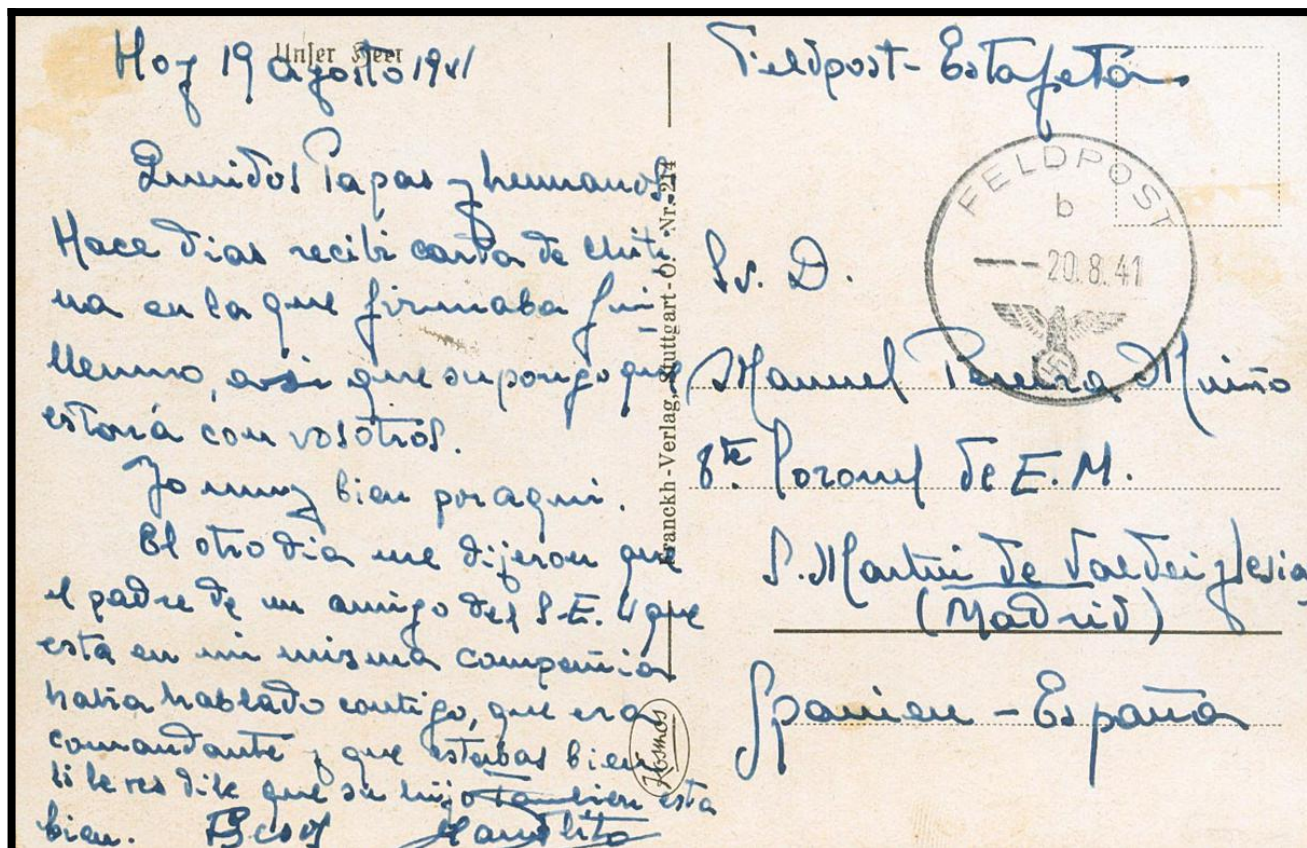 Unser Heer
Hoy 19 agosto 1941
Queridos Papas y hermanos.
Hace dias recibi carta de Chiti-
na en la que firmaba Gui-
llermo, asi que supongo que
estará con vosotros.
Yo muy bien por aqui.
El otro dia me dijeron que
el padre de un amigo del S.E.U que
esta en mi misma compañia
habia hablado contigo, que era
comandante y que estabas bien
si le ves dile que su hijo tambien esta
bien. Besos Manolito
Franckh-Verlag, Stuttgart-O. Nr. 214
Kosmos
Feldpost - Estafeta
FELDPOST
b
20.8.41
Sr. D.
Manuel Pereira Muiño
Tte. Coronel de E.M.
S. Martin de Valdeiglesias
(Madrid)
Spanien - España